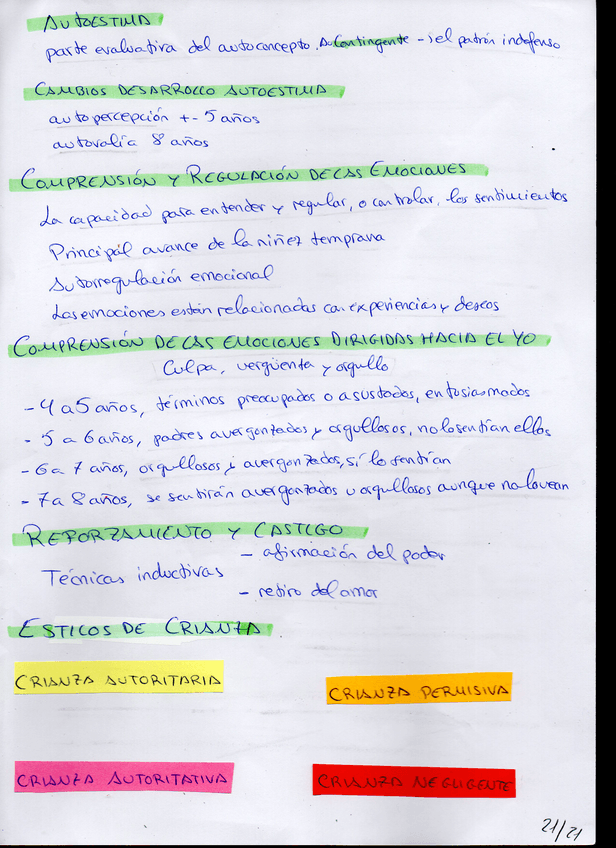 AUTOESTIMA
parte evaluativa del autoconcepto. Contingente -> el patrón indefenso
CAMBIOS DESARROLLO AUTOESTIMA
autopercepción +- 5 años
autovalía 8 años
COMPRENSIÓN Y REGULACIÓN DE LAS EMOCIONES
La capacidad para entender y regular, o controlar, los sentimientos
Principal avance de la niñez temprana
Autorregulación emocional
Las emociones están relacionadas con experiencias y deseos
COMPRENSIÓN DE LAS EMOCIONES DIRIGIDAS HACIA EL YO
Culpa, vergüenta y orgullo
- 4 a 5 años, términos preocupados o asustados, entusiasmados
- 5 a 6 años, padres avergonzados y orgullosos, no lo sentían ellos
- 6 a 7 años, orgullosos y avergonzados, sí lo sentían
- 7 a 8 años, se sentirán avergonzados u orgullosos aunque no lo vean
REFORZAMIENTO Y CASTIGO
- afirmación del poder
Técnicas inductivas
- retiro del amor
ESTILOS DE CRIANZA
CRIANZA AUTORITARIA
CRIANZA PERMISIVA
CRIANZA AUTORITATIVA
CRIANZA NEGLIGENTE
21/21